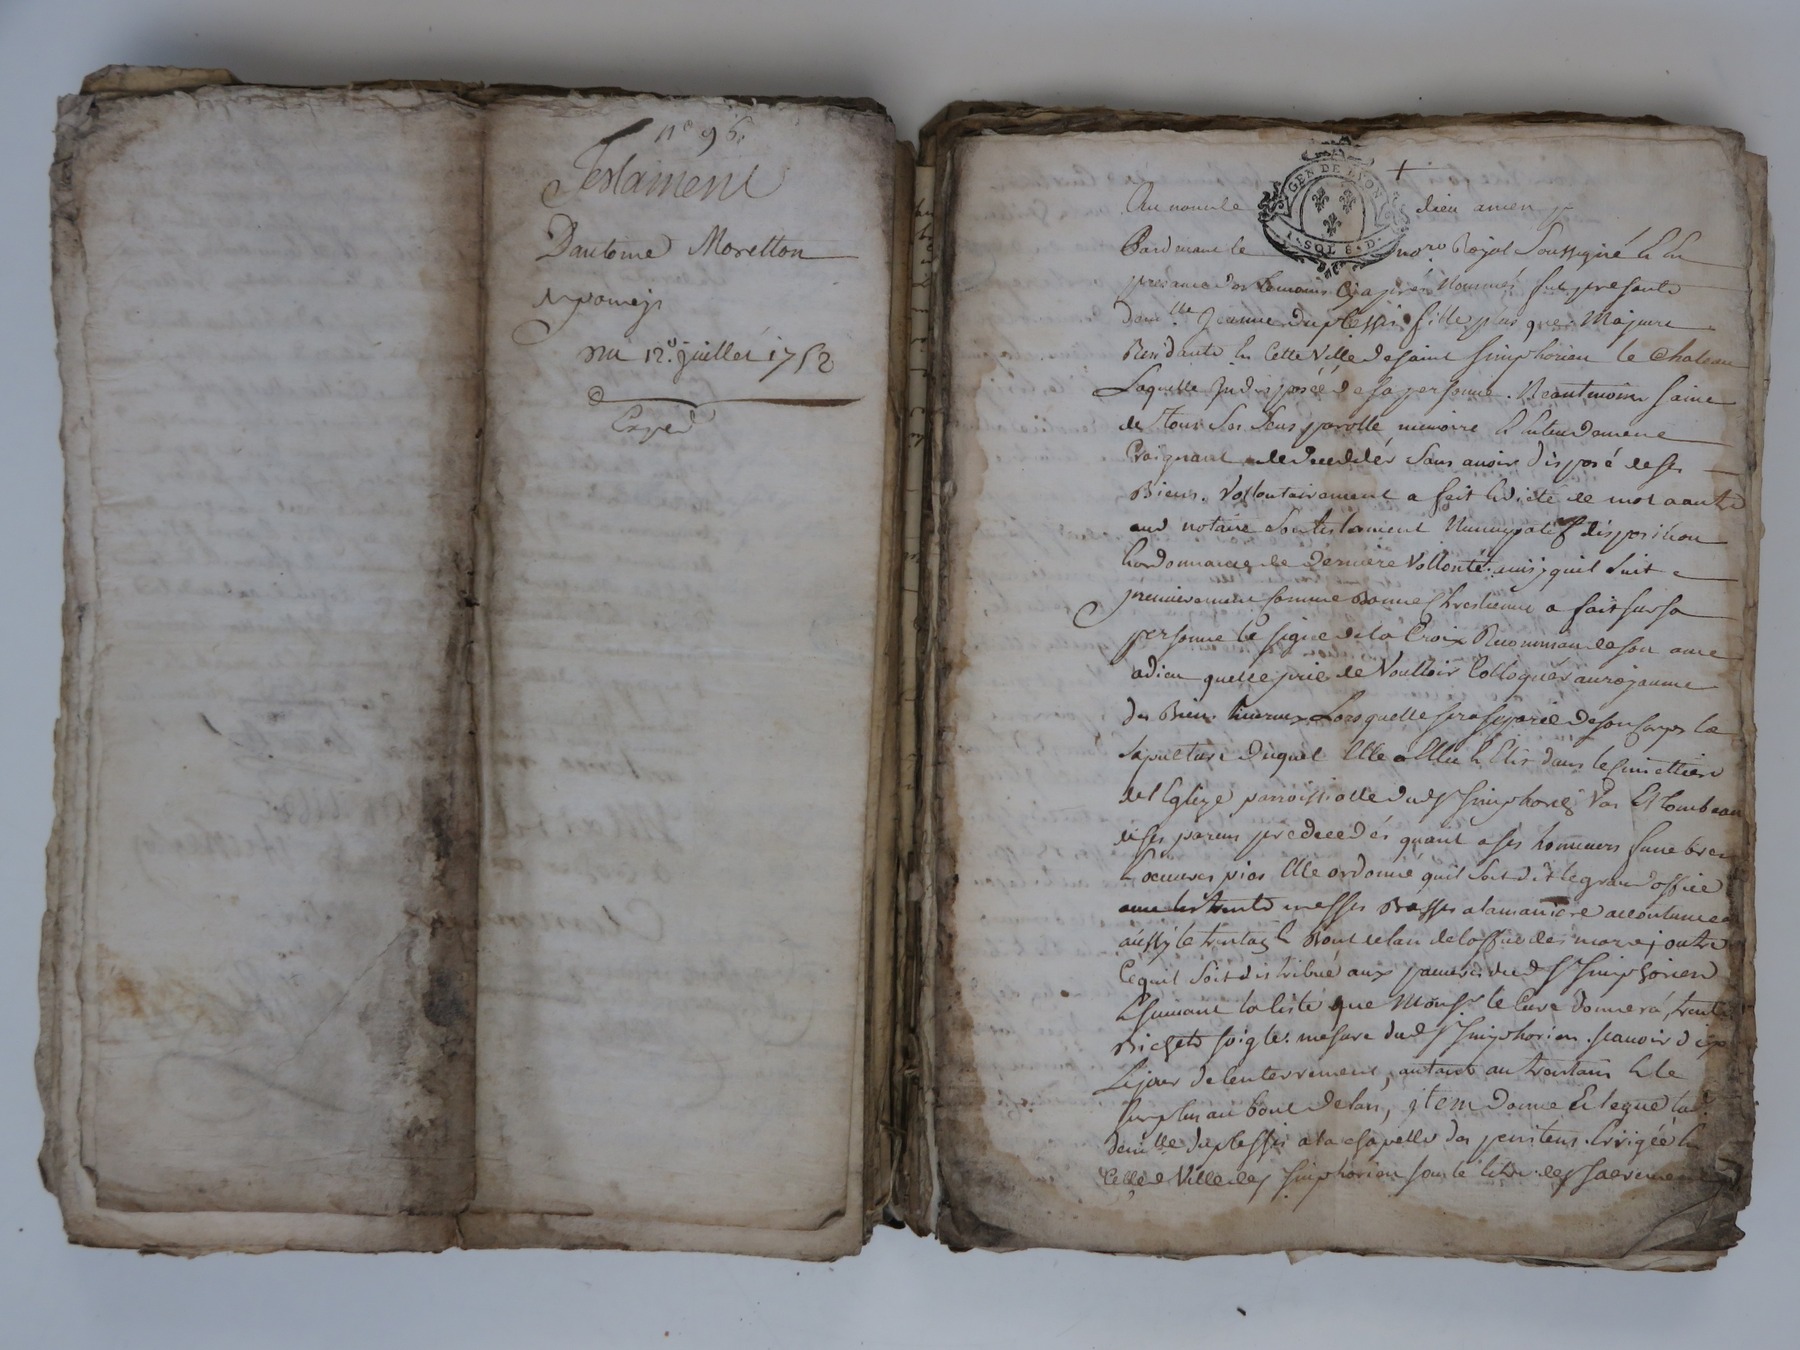 n° 95.
Testament
Dantoine Moretton
apomeys
du 12e. juillet 1752
Exped
GEN DE LYON
1 · SOL 8 · D ·
+
Au nom de dieu amen
Pardevant le no.re Royal Soussigné & en
presance des temoins cy apres Nommés fut presante
dam.lle Jeanne duplessis fille plus que Majeure
Residante en cette Ville de saint simphorien le chateau
Laquelle Indisposéé de sa personne. Neantmoins saine
de tous ses sens parolle memoire & entendement
Craignant de deceder sans avoir disposé de ses
Biens. Vollontairement a fait & dicté de mot a autre
aud notaire son testament Nuncupatif disposition
& ordonnance de derniere Vollonté. ainsy quil suit
premierement comme Bonne Chrestienne a fait sur sa
personne le signe de la Croix Recommande son ame
a dieu quelle prie de Voulloir Colloquer au royaume
des Bien. heureux Lors quelle sera separéé de son corps la
sepulture duquel Elle a Elu & Elit dans le simettiere
de l Eglize parroissialle dud St simphorien Vas Et tombeau
de ses parens predecedés quant a ses honneurs funebres
& oeuvres pies Elle ordonne quil soit dit le grand office
avec trente messes Basses a la maniere accoutumee
aussy le trentain & Bout de lan de loffice des morts, outre
ce quil soit distribué aux pauvres dud St simphorien
& suivant la liste que Monsr le Curé donnera, trente
Bichets soigle. mesure dud St simphorien. scavoir dix
Le jour de lenterrement, autant au trentain & le
surplus au bout de lan, jtem donne Et legue lad.
demlle duplessis a la chapelle des penitens Erigéé en
cette Ville de St simphorien sous le titre de St sacrement